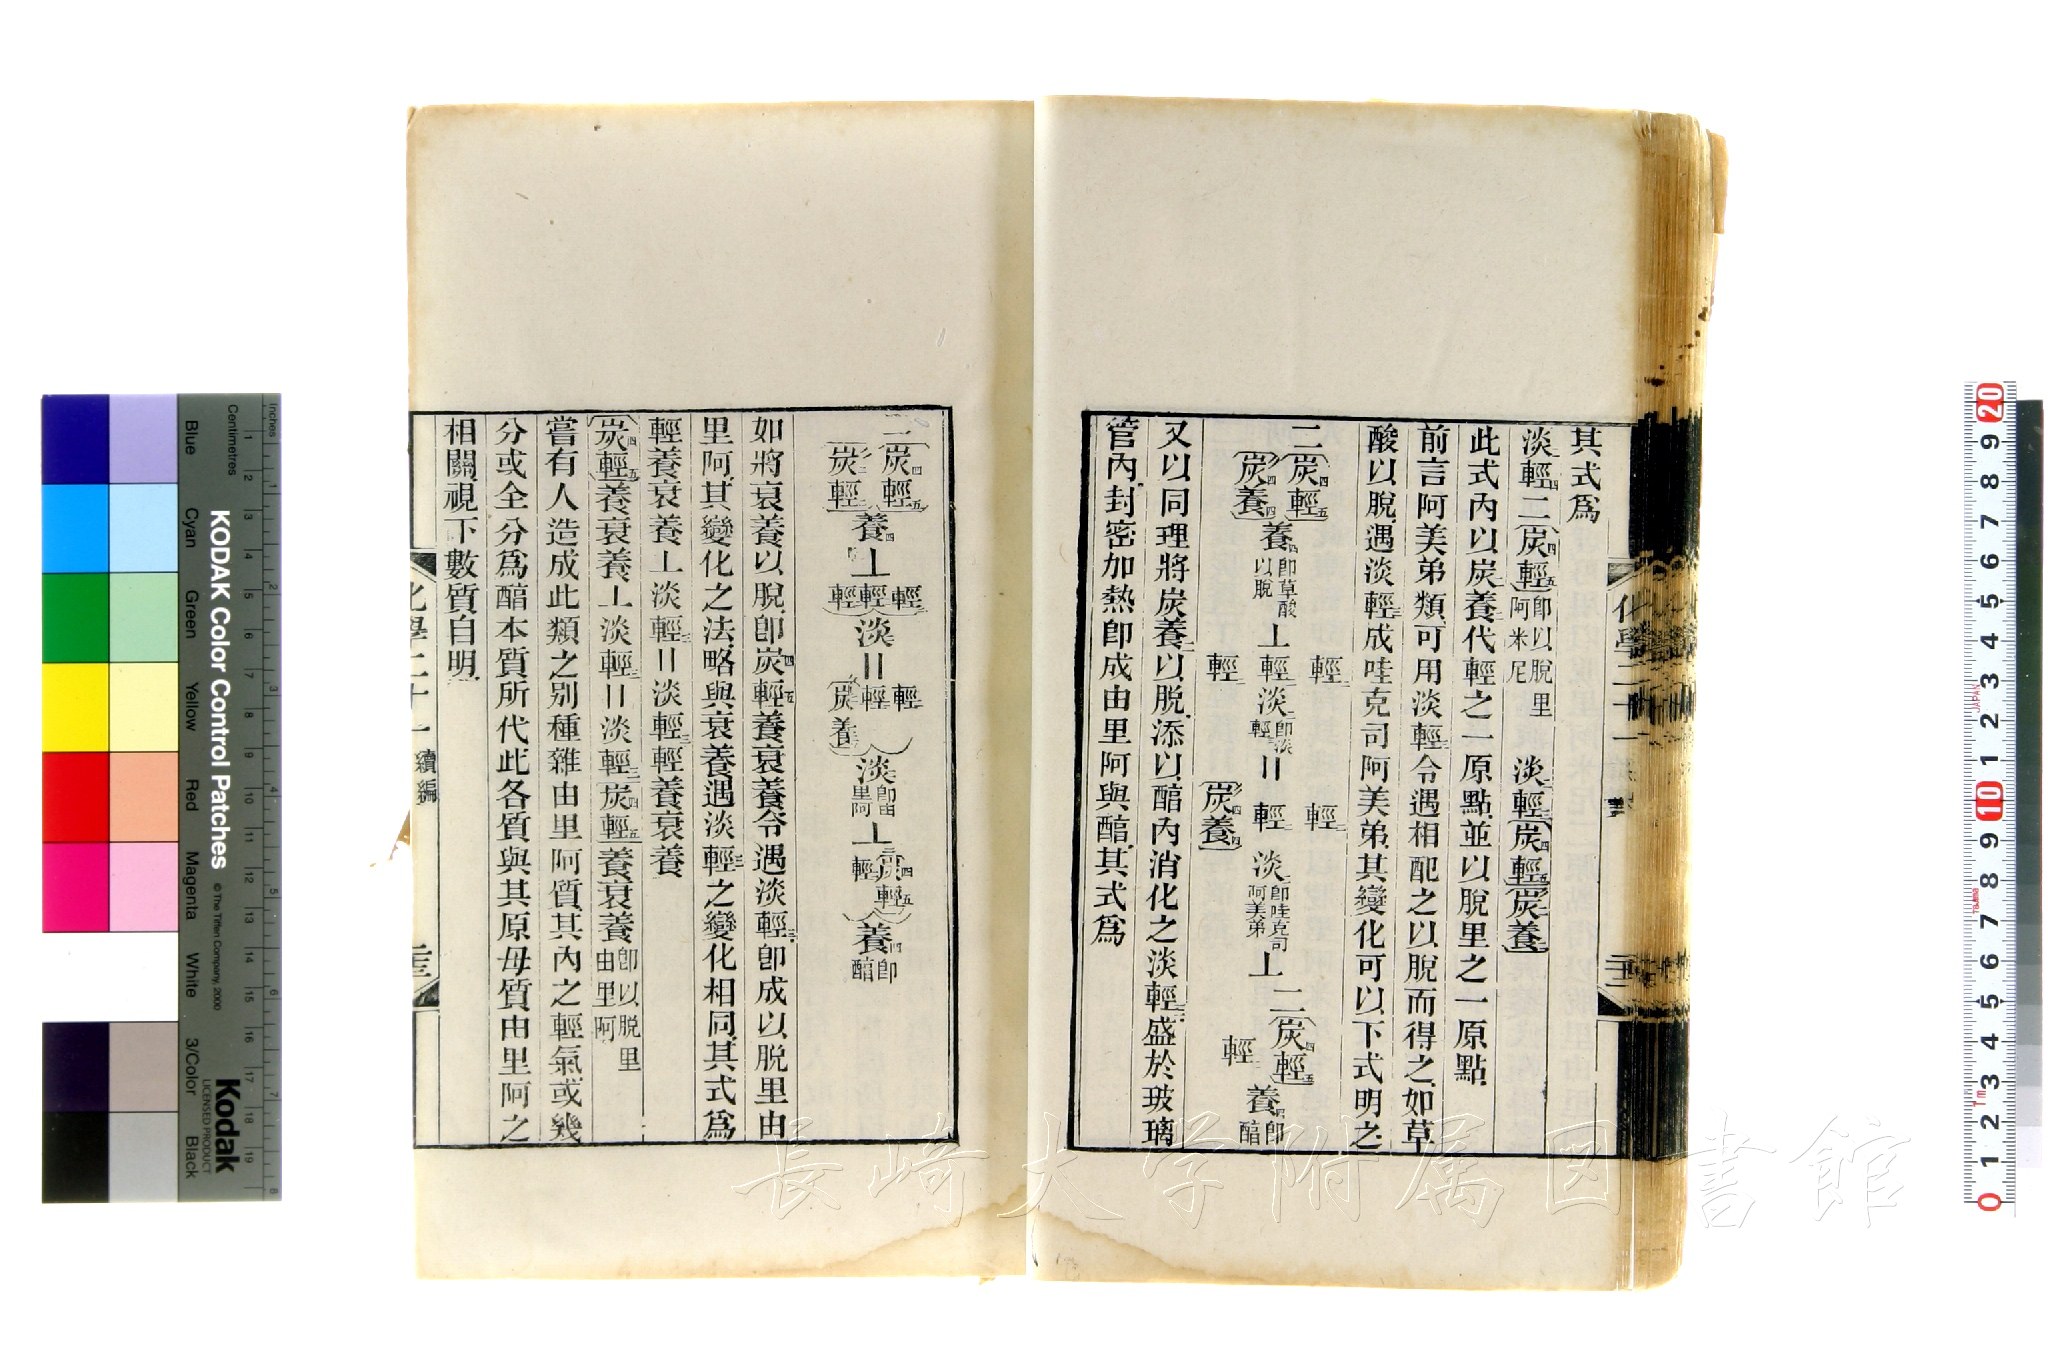 其式爲
淡輕二(炭四輕五 卽以脫里阿米尼 淡輕(炭四輕五)(炭二養二)
此式內以炭二養二代輕之一原點並以脫里之一原點
前言阿美弟類可用淡輕三令遇相配之以脫而得之如草
酸以脫遇淡輕三成哇克司阿美弟其變化可以下式明之
二(炭四輕五)(炭四養四)養四 卽草酸以脫 ⊥ 輕二輕二輕二淡二 卽淡輕三 〢 輕二輕二(炭四養四)淡二 卽哇克司阿美弟 ⊥ 二(炭四輕五)輕二養四 卽醕
又以同理將炭二養二以脫添以醕內消化之淡輕三盛於玻璃
管內封密加熱卽成由里阿與醕其式爲
化學二十一 續編
二(炭四輕五)炭輕養四 ⊥ 輕輕輕淡 〢 輕輕(炭養淡 卽由里阿 ⊥ 二炭四輕五輕養四 卽醕
如將衰養以脫卽炭四輕五養衰養令遇淡輕三卽成以脫里由
里阿其變化之法略與衰養遇淡輕三之變化相同其式爲
輕養衰養⊥淡輕三〢淡輕三輕養衰養
(炭四輕五)養衰養⊥淡輕三〢淡輕三(炭四輕五)養衰養 卽以脫里由里阿
嘗有人造成此類之別種雜由里阿質其內之輕氣或幾
分或全分爲醕本質所代此各質與其原母質由里阿之
相關視下數質自明
化學二十一 續編
長崎大学附属図書館
KODAK Color Control Patches
© The Tiffen Company, 2000
Kodak
LICENSED PRODUCT
Inches
Centimetres
Blue
Cyan
Green
Yellow
Red
Magenta
White
3/Color
Black